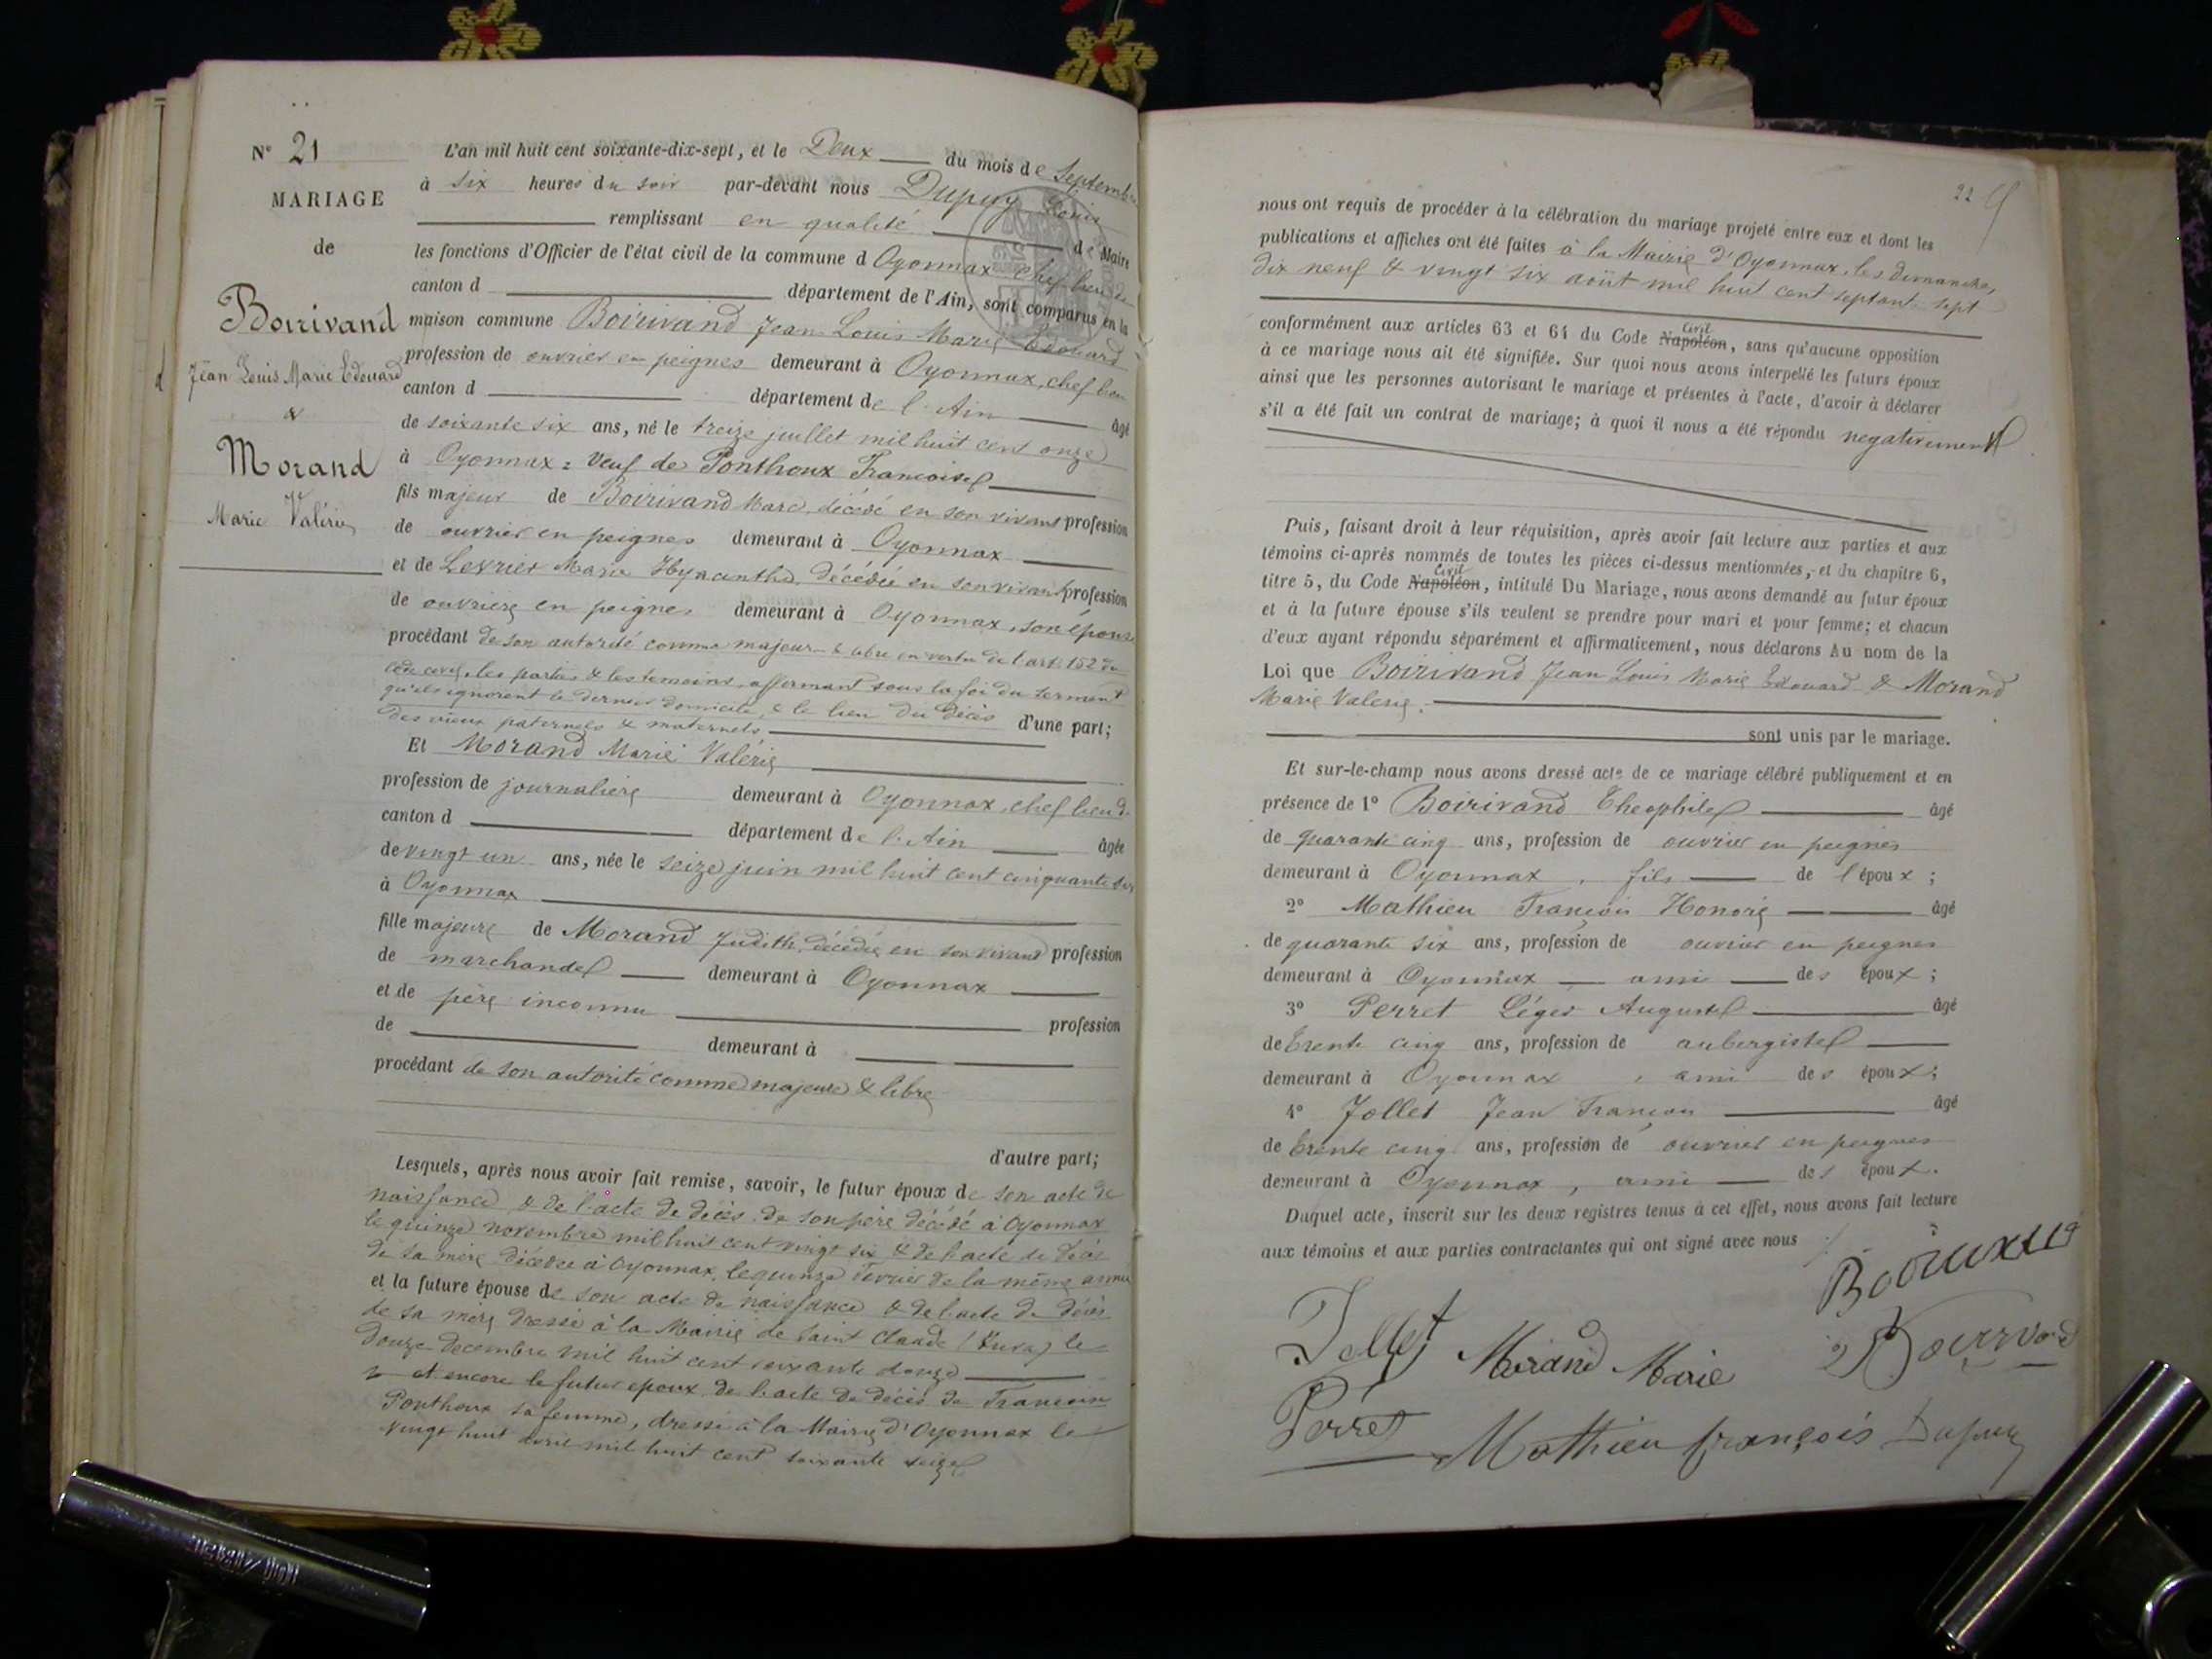 N° 21
MARIAGE
de
Boirivand
Jean Louis Marie Edouard
&
Morand
Marie Valérie
L'an mil huit cent soixante-dix-sept, et le Deux du mois de Septembre
à six heures du soir par-devant nous Dupuy Louis
remplissant en qualité de Maire
les fonctions d'Officier de l'état civil de la commune d Oyonnax chef lieu de
canton d département de l'Ain, sont comparus en la
maison commune Boirivand Jean Louis Marie Edouard
profession de ouvrier en peignes demeurant à Oyonnax, chef lieu
canton d département de l'Ain âgé
de soixante six ans, né le treize juillet mil huit cent onze
à Oyonnax = Veuf de Ponthoux Francoise
fils majeur de Boirivand Marc, décédé en son vivant profession
de ouvrier en peignes demeurant à Oyonnax
et de Levrier Marie Hyacinthe, décédée en son vivant profession
de ouvriere en peignes demeurant à Oyonnax, son épouse
procédant de son autorité comme majeur & libre en vertu de l'art. 152 du
code civil, les parties & les témoins affirmant sous la foi du serment
qu'ils ignorent le dernier domicile & le lieu du décès d'une part;
des aïeux paternels & maternels
Et Morand Marie Valérie
profession de journalière demeurant à Oyonnax, chef lieu d
canton d département de l'Ain âgée
de vingt un ans, née le seize juin mil huit cent cinquante six
à Oyonnax
fille majeure de Morand Judith, décédée en son vivant profession
de marchande demeurant à Oyonnax
et de père inconnu
profession
de demeurant à
procédant de son autorité comme majeure & libre
d'autre part;
Lesquels, après nous avoir fait remise, savoir, le futur époux de son acte de
naissance & de l'acte de décès de son père décédé à Oyonnax
le quinze novembre mil huit cent vingt six & de l'acte de décès
de sa mère décédée à Oyonnax, le quinze Février de la même année
et la future épouse de son acte de naissance & de l'acte de décès
de sa mère dressé à la Mairie de Saint Claude (Jura) le
douze decembre mil huit cent soixante douze
et encore le futur epoux de l'acte de décès de
Ponthoux sa femme, dressé à la Mairie d'Oyonnax le
vingt huit avril mil huit cent soixante seize
22
nous ont requis de procéder à la célébration du mariage projeté entre eux et dont les
publications et affiches ont été faites à la Mairie d'Oyonnax, les dimanches,
dix neuf & vingt six août mil huit cent septante sept
conformément aux articles 63 et 64 du Code Napoléon Civil, sans qu'aucune opposition
à ce mariage nous ait été signifiée. Sur quoi nous avons interpellé les futurs époux
ainsi que les personnes autorisant le mariage et présentes à l'acte, d'avoir à déclarer
s'il a été fait un contrat de mariage; à quoi il nous a été répondu negativement
Puis, faisant droit à leur réquisition, après avoir fait lecture aux parties et aux
témoins ci-après nommés de toutes les pièces ci-dessus mentionnées, et du chapitre 6,
titre 5, du Code Napoléon Civil, intitulé Du Mariage, nous avons demandé au futur époux
et à la future épouse s'ils veulent se prendre pour mari et pour femme; et chacun
d'eux ayant répondu séparément et affirmativement, nous déclarons Au nom de la
Loi que Boirivand Jean Louis Marie Edouard & Morand
Marie Valerie.
sont unis par le mariage.
Et sur-le-champ nous avons dressé acte de ce mariage célébré publiquement et en
présence de 1° Boirivand Theophile âgé
de quarante cinq ans, profession de ouvrier en peignes
demeurant à Oyonnax, fils de l'époux;
2° Mathieu François Honoré âgé
de quarante six ans, profession de ouvrier en peignes
demeurant à Oyonnax ami des époux;
3° Perret Léger Auguste âgé
de trente cinq ans, profession de aubergiste
demeurant à Oyonnax, ami des époux;
4° Jollet Jean François âgé
de trente cinq ans, profession de ouvrier en peignes
demeurant à Oyonnax, ami des époux.
Duquel acte, inscrit sur les deux registres tenus à cet effet, nous avons fait lecture
aux témoins et aux parties contractantes qui ont signé avec nous
Jollet Morand Marie
Perret Mathieu françois Dupuy